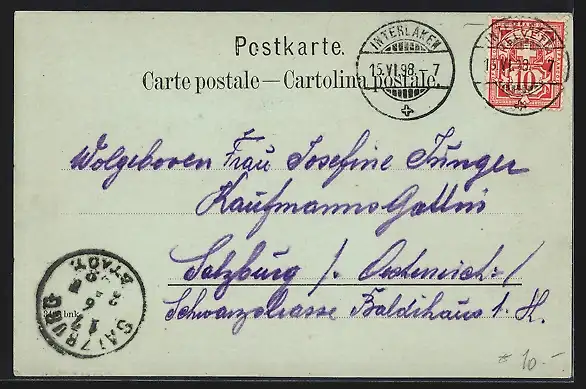 Postkarte.
Carte postale—Cartolina postale.
INTERLAKEN
15.VI.98.-7
INTERLAKEN
15.VI.98.-7
HELVETIA
10
Wolgeboren Frau Josefine Junger
Kaufmanns Gattin
Salzburg / Oesterreich /
Schwarzstrasse Baldihaus 1. H.
SALZBURG
STADT
17
6
* 10.-